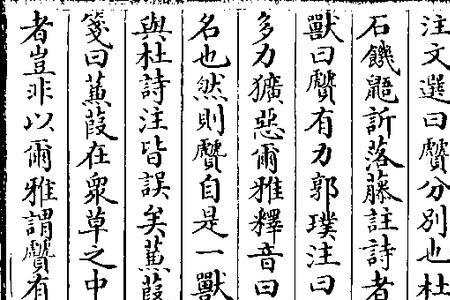 注文選曰贙分別也杜
石饑鼯訢落藤註詩者
獸曰贙有力郭璞注曰
多力獷惡爾雅釋音曰
名也然則贙自是一獸
與杜詩注皆誤矣蕉葭
箋曰蕉葭在眾草之中
者豈非以爾雅謂贙有